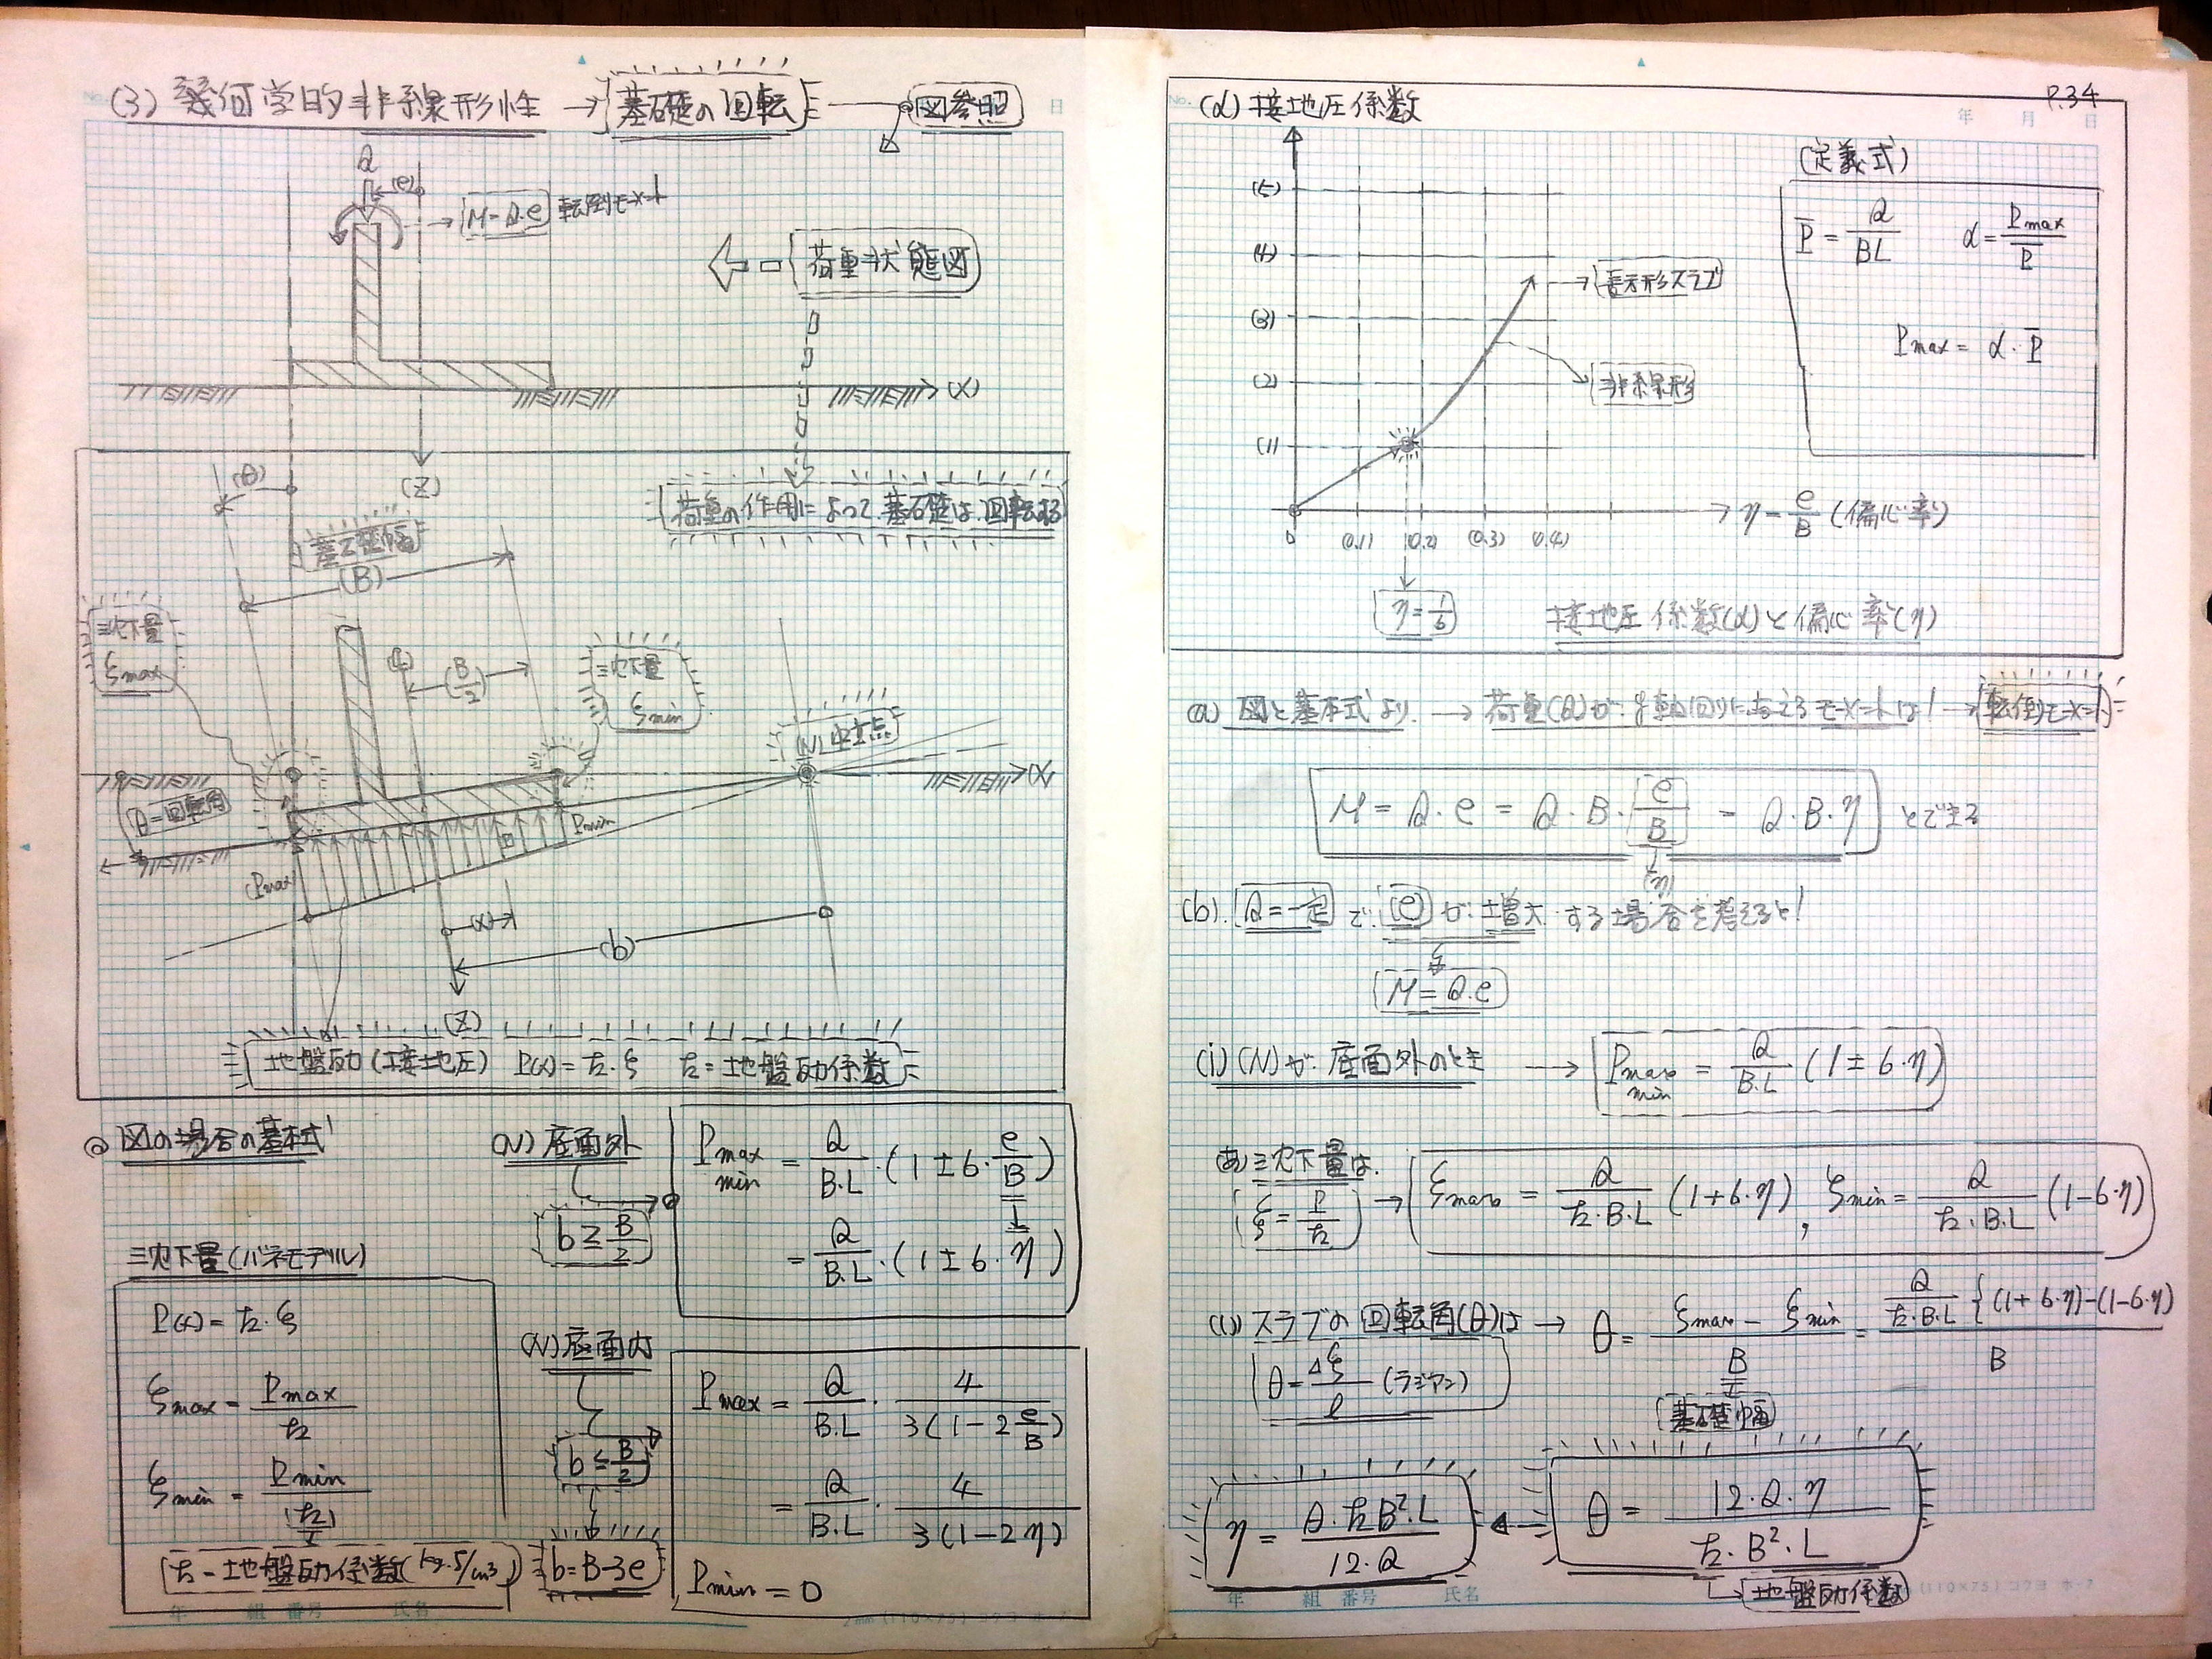 (3) 幾何学的非線形性 → 基礎の回転 → 図参照
Q
(e)
M=Q・e 転倒モーメント
荷重状態図
(x)
(Z)
(θ)
荷重の作用によって基礎は回転する
基礎幅
(B)
沈下量
ξmax
(B/2)
沈下量
ξmin
(N)中立点
(x)
θ=回転角
Pmin
(Pmax)
(x)
(b)
(Z)
地盤反力(接地圧) P(x)=k・ξ k=地盤反力係数
◎図の場合の基本式
(N)底面外
b≧B/2
Pmax min = Q/B・L・(1±6・e/B)
= Q/B・L・(1±6・η)
沈下量(バネモデル)
P(x)=k・ξ
ξmax = Pmax/k
ξmin = Pmin/(k)
k=地盤反力係数(kg・f/cm³)
(N)底面内
b≦B/2
b=B-3e
Pmax = Q/B・L・4/3(1-2e/B)
= Q/B・L・4/3(1-2η)
Pmin = 0
年 組 番号 氏名
P.34
年 月 日
(α)接地圧係数
(定義式)
P̄ = Q/BL α = Pmax/P̄
Pmax = α・P̄
(5)
(4)
(3)
(2)
(1)
長方形スラブ
非線形
0 (0.1) (0.2) (0.3) (0.4)
η=e/B (偏心率)
η=1/6
接地圧係数(α)と偏心率(η)
(a) 図と基本式より → 荷重(Q)がy軸回りに与えるモーメントは! → 転倒モーメント
M = Q・e = Q・B・e/B = Q・B・η とできる
(η)
(b). Q=一定 で (e) が増大する場合を考えると!
M=Q.e
(i) (N)が底面外のとき → Pmax min = Q/B.L (1±6・η)
(あ) 沈下量は.
ξ=P/k → ξmax = Q/k・B・L (1+6・η) , ξmin = Q/k・B・L (1-6・η)
(い) スラブの回転角(θ)は → θ = ξmax - ξmin/B = Q/k・B・L {(1+6・η)-(1-6・η)}/B
θ=Δξ/ℓ (ラジアン)
基礎幅
η = θ・kB²・L/12・Q ← θ = 12・Q・η/k・B²・L
地盤反力係数
年 組 番号 氏名